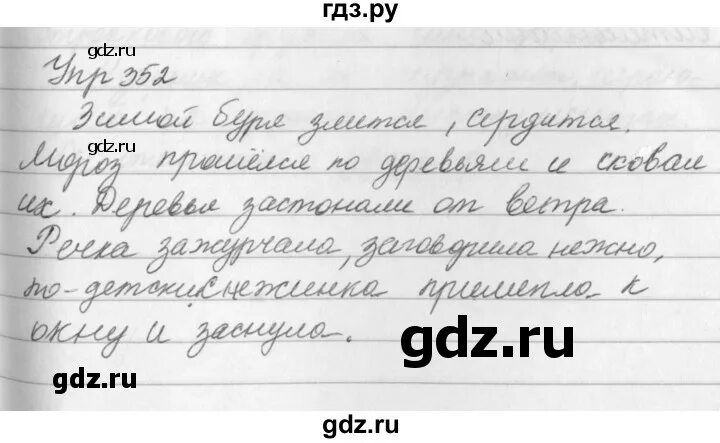 гдз.ру
gdz.ru
gdz.ru
Упр 352
Зимой буря злится, сердится.
Мороз прошёлся по деревьям и сковал
их. Деревья застонали от ветра.
Речка зажурчала, заговорила нежно,
по-детски. Снежинка прилипла к
окну и заснула.
gdz.ru
gdz.ru
gdz.ru
gdz.ru
gdz.ru